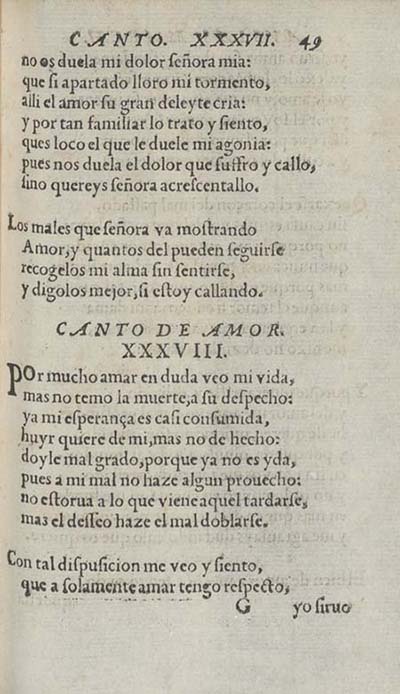 CANTO. XXXVII. 49
no os duela mi dolor señora mia:
que si apartado lloro mi tormento,
alli el amor su gran deleyte cria:
y por tan familiar lo trato y siento,
ques loco el que le duele mi agonia:
pues nos duela el dolor que suffro y callo,
sino quereys señora acrescentallo.
Los males que señora va mostrando
Amor, y quantos del pueden seguirse
recogelos mi alma sin sentirse,
y digolos mejor, si estoy callando.
CANTO DE AMOR.
XXXVIII.
POr mucho amar en duda veo mi vida,
mas no temo la muerte, a su despecho:
ya mi esperança es casi consumida,
huyr quiere de mi, mas no de hecho:
doyle mal grado, porque ya no es yda,
pues a mi mal no haze algun prouecho:
no estorua a lo que viene aquel tardarse,
mas el desseo haze el mal doblarse.
Con tal dispusicion me veo y siento,
que a solamente amar tengo respecto,
G yo siruo